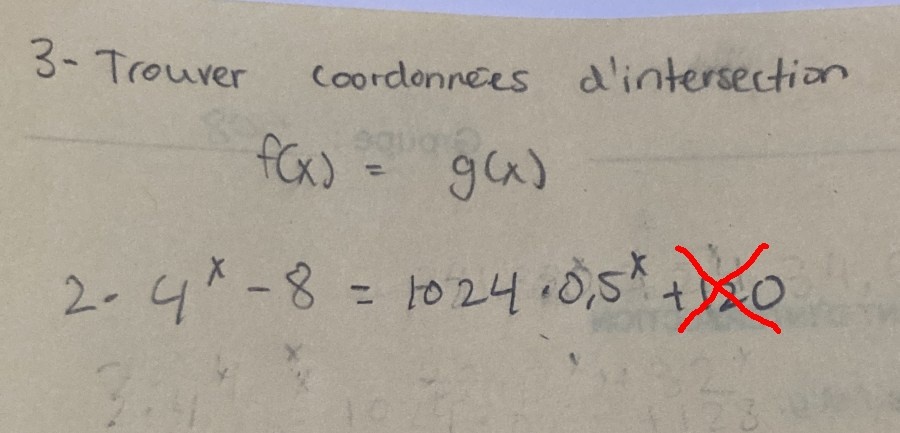 3- Trouver coordonnées d'intersection
f(x) = g(x)
2 · 4^x - 8 = 1024 · 0,5^x + 120